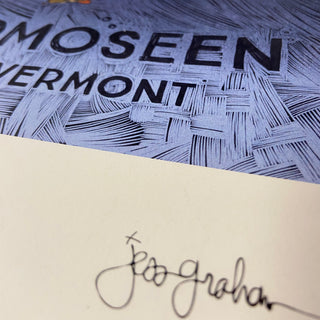 OMOSEEN
VERMONT
jess graham